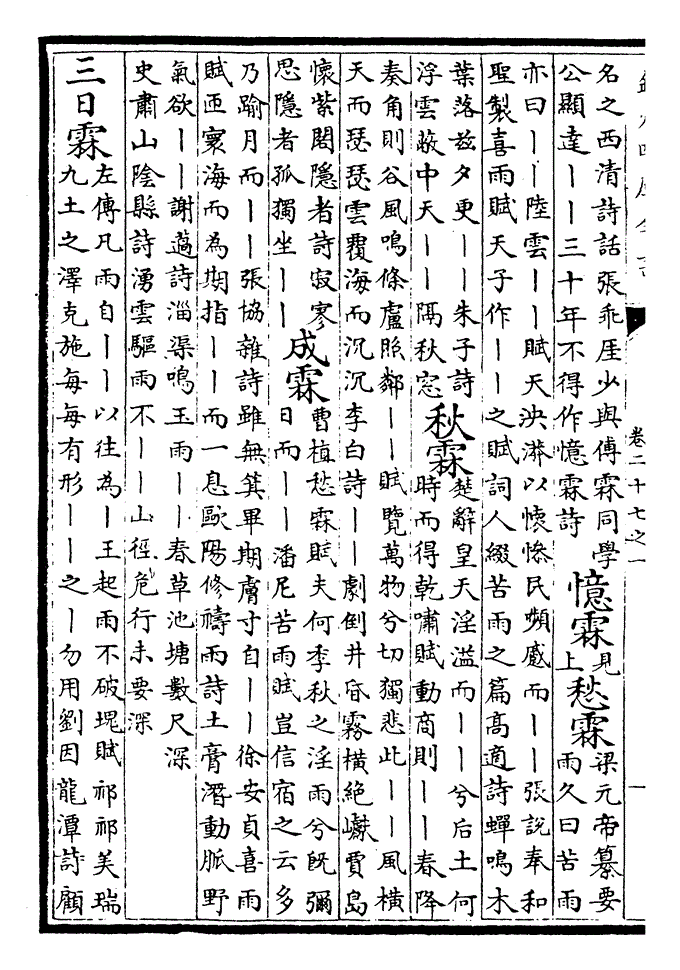 卷二十七之一
一
名之西清詩話張乖厓少與傅霖同學
公顯達丨丨三十年不得作憶霖詩
憶霖
見
上
愁霖
梁元帝纂要
雨久曰苦雨
亦曰丨丨陸雲丨丨賦天泱漭以懷慘民嚬慼而丨丨張說奉和
聖製喜雨賦天子作丨丨之賦詞人綴苦雨之篇高適詩蟬鳴木
葉落兹夕更丨丨朱子詩
浮雲蔽中天丨丨隔秋窓
秋霖
楚辭皇天淫溢而丨丨兮后土何
時而得乾嘯賦動商則丨丨春降
奏角則谷風鳴條盧照鄰丨丨賦覽萬物兮切獨悲此丨丨風橫
天而瑟瑟雲覆海而沉沉李白詩丨丨劇倒井昏霧橫絕巘賈島
懷紫閣隱者詩寂寥
思隱者孤獨坐丨丨
成霖
曹植愁霖賦夫何季秋之淫雨兮既彌
日而丨丨潘尼苦雨賦豈信宿之云多
乃踰月而丨丨張協雜詩雖無箕畢期膚寸自丨丨徐安貞喜雨
賦匝寰海而為期指丨丨而一息歐陽修禱雨詩土膏潛動脈野
氣欲丨丨謝薖詩淄渠鳴玉雨丨丨春草池塘數尺深
史肅山陰縣詩湧雲驅雨不丨丨山徑危行未要深
三日霖
左傳凡雨自丨丨以往為丨王起雨不破塊賦祁祁美瑞
九土之澤克施每每有形丨丨之丨勿用劉因龍潭詩顧